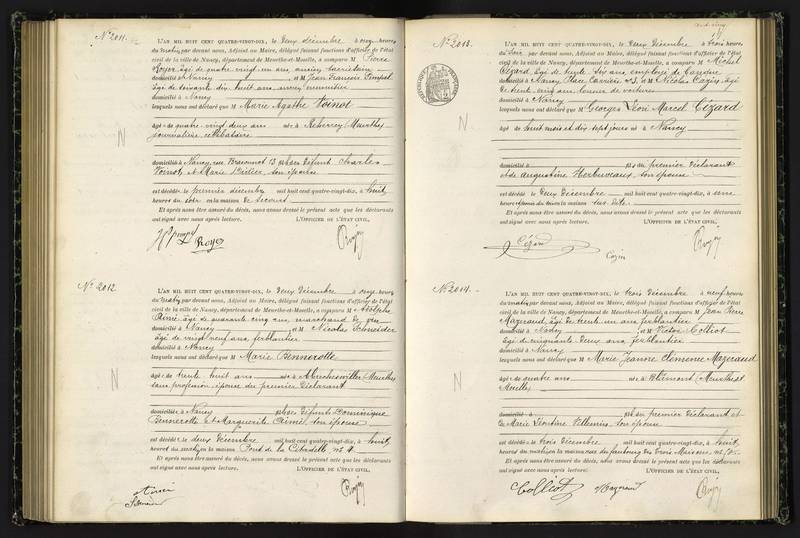 N° 2011.
L'AN MIL HUIT CENT QUATRE-VINGT-DIX, le deux décembre à onze heures
du matin, par devant nous, Adjoint au Maire, délégué faisant fonctions d'officier de l'état
civil de la ville de Nancy, département de Meurthe-et-Moselle, a comparu M Pierre
Royer, âgé de quatre vingt un ans, ancien
domicilié à Nancy et M Jean François
âgé de soixante dix huit ans, ancien
domicilié à Nancy
lesquels nous ont déclaré que M Marie Agathe Voinot
âgée de quatre vingt deux ans née à Réherrey (Meurthe)
journalière, célibataire
domiciliée à Nancy, rue Braconnot 13 fille des défunts Charles
Voinot et Marie son épouse
est décédée le premier décembre mil huit cent quatre-vingt-dix, à huit
heures du soir en la maison de secours
Et après nous être assuré du décès, nous avons dressé le présent acte que les déclarants
ont signé avec nous après lecture. L'OFFICIER DE L'ÉTAT CIVIL,
Royer
N
N° 2012
L'AN MIL HUIT CENT QUATRE-VINGT-DIX, le deux décembre à onze heures
du matin, par devant nous, Adjoint au Maire, délégué faisant fonctions d'officier de l'état
civil de la ville de Nancy, département de Meurthe-et-Moselle, a comparu M Adolphe
Aimé, âgé de quarante cinq ans, marchand de
domicilié à Nancy et M Nicolas Schneider
âgé de vingt neuf ans, ferblantier
domicilié à Nancy
lesquels nous ont déclaré que M Marie Bennerotte
âgée de trente huit ans née à Abreschwiller (Meurthe)
sans profession, épouse du premier déclarant
domiciliée à Nancy fille des défunts Dominique
Bennerotte et Marguerite Aimé, son épouse
est décédée le deux décembre mil huit cent quatre-vingt-dix, à huit
heures du matin en la maison Pont de la Citadelle n° 4
Et après nous être assuré du décès, nous avons dressé le présent acte que les déclarants
ont signé avec nous après lecture. L'OFFICIER DE L'ÉTAT CIVIL,
N
N° 2013.
L'AN MIL HUIT CENT QUATRE-VINGT-DIX, le deux décembre à trois heures
du soir, par devant nous, Adjoint au Maire, délégué faisant fonctions d'officier de l'état
civil de la ville de Nancy, département de Meurthe-et-Moselle, a comparu M Michel
Cézard, âgé de trente six ans, employé de
domicilié à Nancy, Place Carrière 43, et M Nicolas Cazin, âgé
de trente cinq ans, loueur de voitures
domicilié à Nancy
lesquels nous ont déclaré que M Georges Léon Marcel Cézard
âgé de huit mois et dix sept jours né à Nancy
domicilié à fils du premier déclarant
et de Augustine Herbuvaux, son épouse
est décédé le deux décembre mil huit cent quatre-vingt-dix, à onze
heures du matin en la maison sus dite
Et après nous être assuré du décès, nous avons dressé le présent acte que les déclarants
ont signé avec nous après lecture. L'OFFICIER DE L'ÉTAT CIVIL,
Cézard
Cazin
N
N° 2014.
L'AN MIL HUIT CENT QUATRE-VINGT-DIX, le trois décembre à neuf heures
du matin, par devant nous, Adjoint au Maire, délégué faisant fonctions d'officier de l'état
civil de la ville de Nancy, département de Meurthe-et-Moselle, a comparu M Jean Pierre
Mazerand, âgé de trente un ans, ferblantier
domicilié à Nancy, et M Victor Colliot
âgé de cinquante deux ans, ferblantier
domicilié à Nancy
lesquels nous ont déclaré que M Marie Jeanne Clémence Mazerand
âgée de quatre ans née à Blâmont (Meurthe et
Moselle)
domiciliée à fille du premier déclarant et
de Marie Léontine Villemin son épouse
est décédée le trois décembre mil huit cent quatre-vingt-dix, à huit
heures du matin en la maison rue du faubourg des trois Maisons
Et après nous être assuré du décès, nous avons dressé le présent acte que les déclarants
ont signé avec nous après lecture. L'OFFICIER DE L'ÉTAT CIVIL,
Colliot Mazerand
N